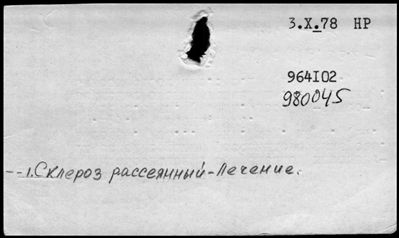 3.X.78 НР
964I02
980045
--1. Склероз рассеянный-Лечение.